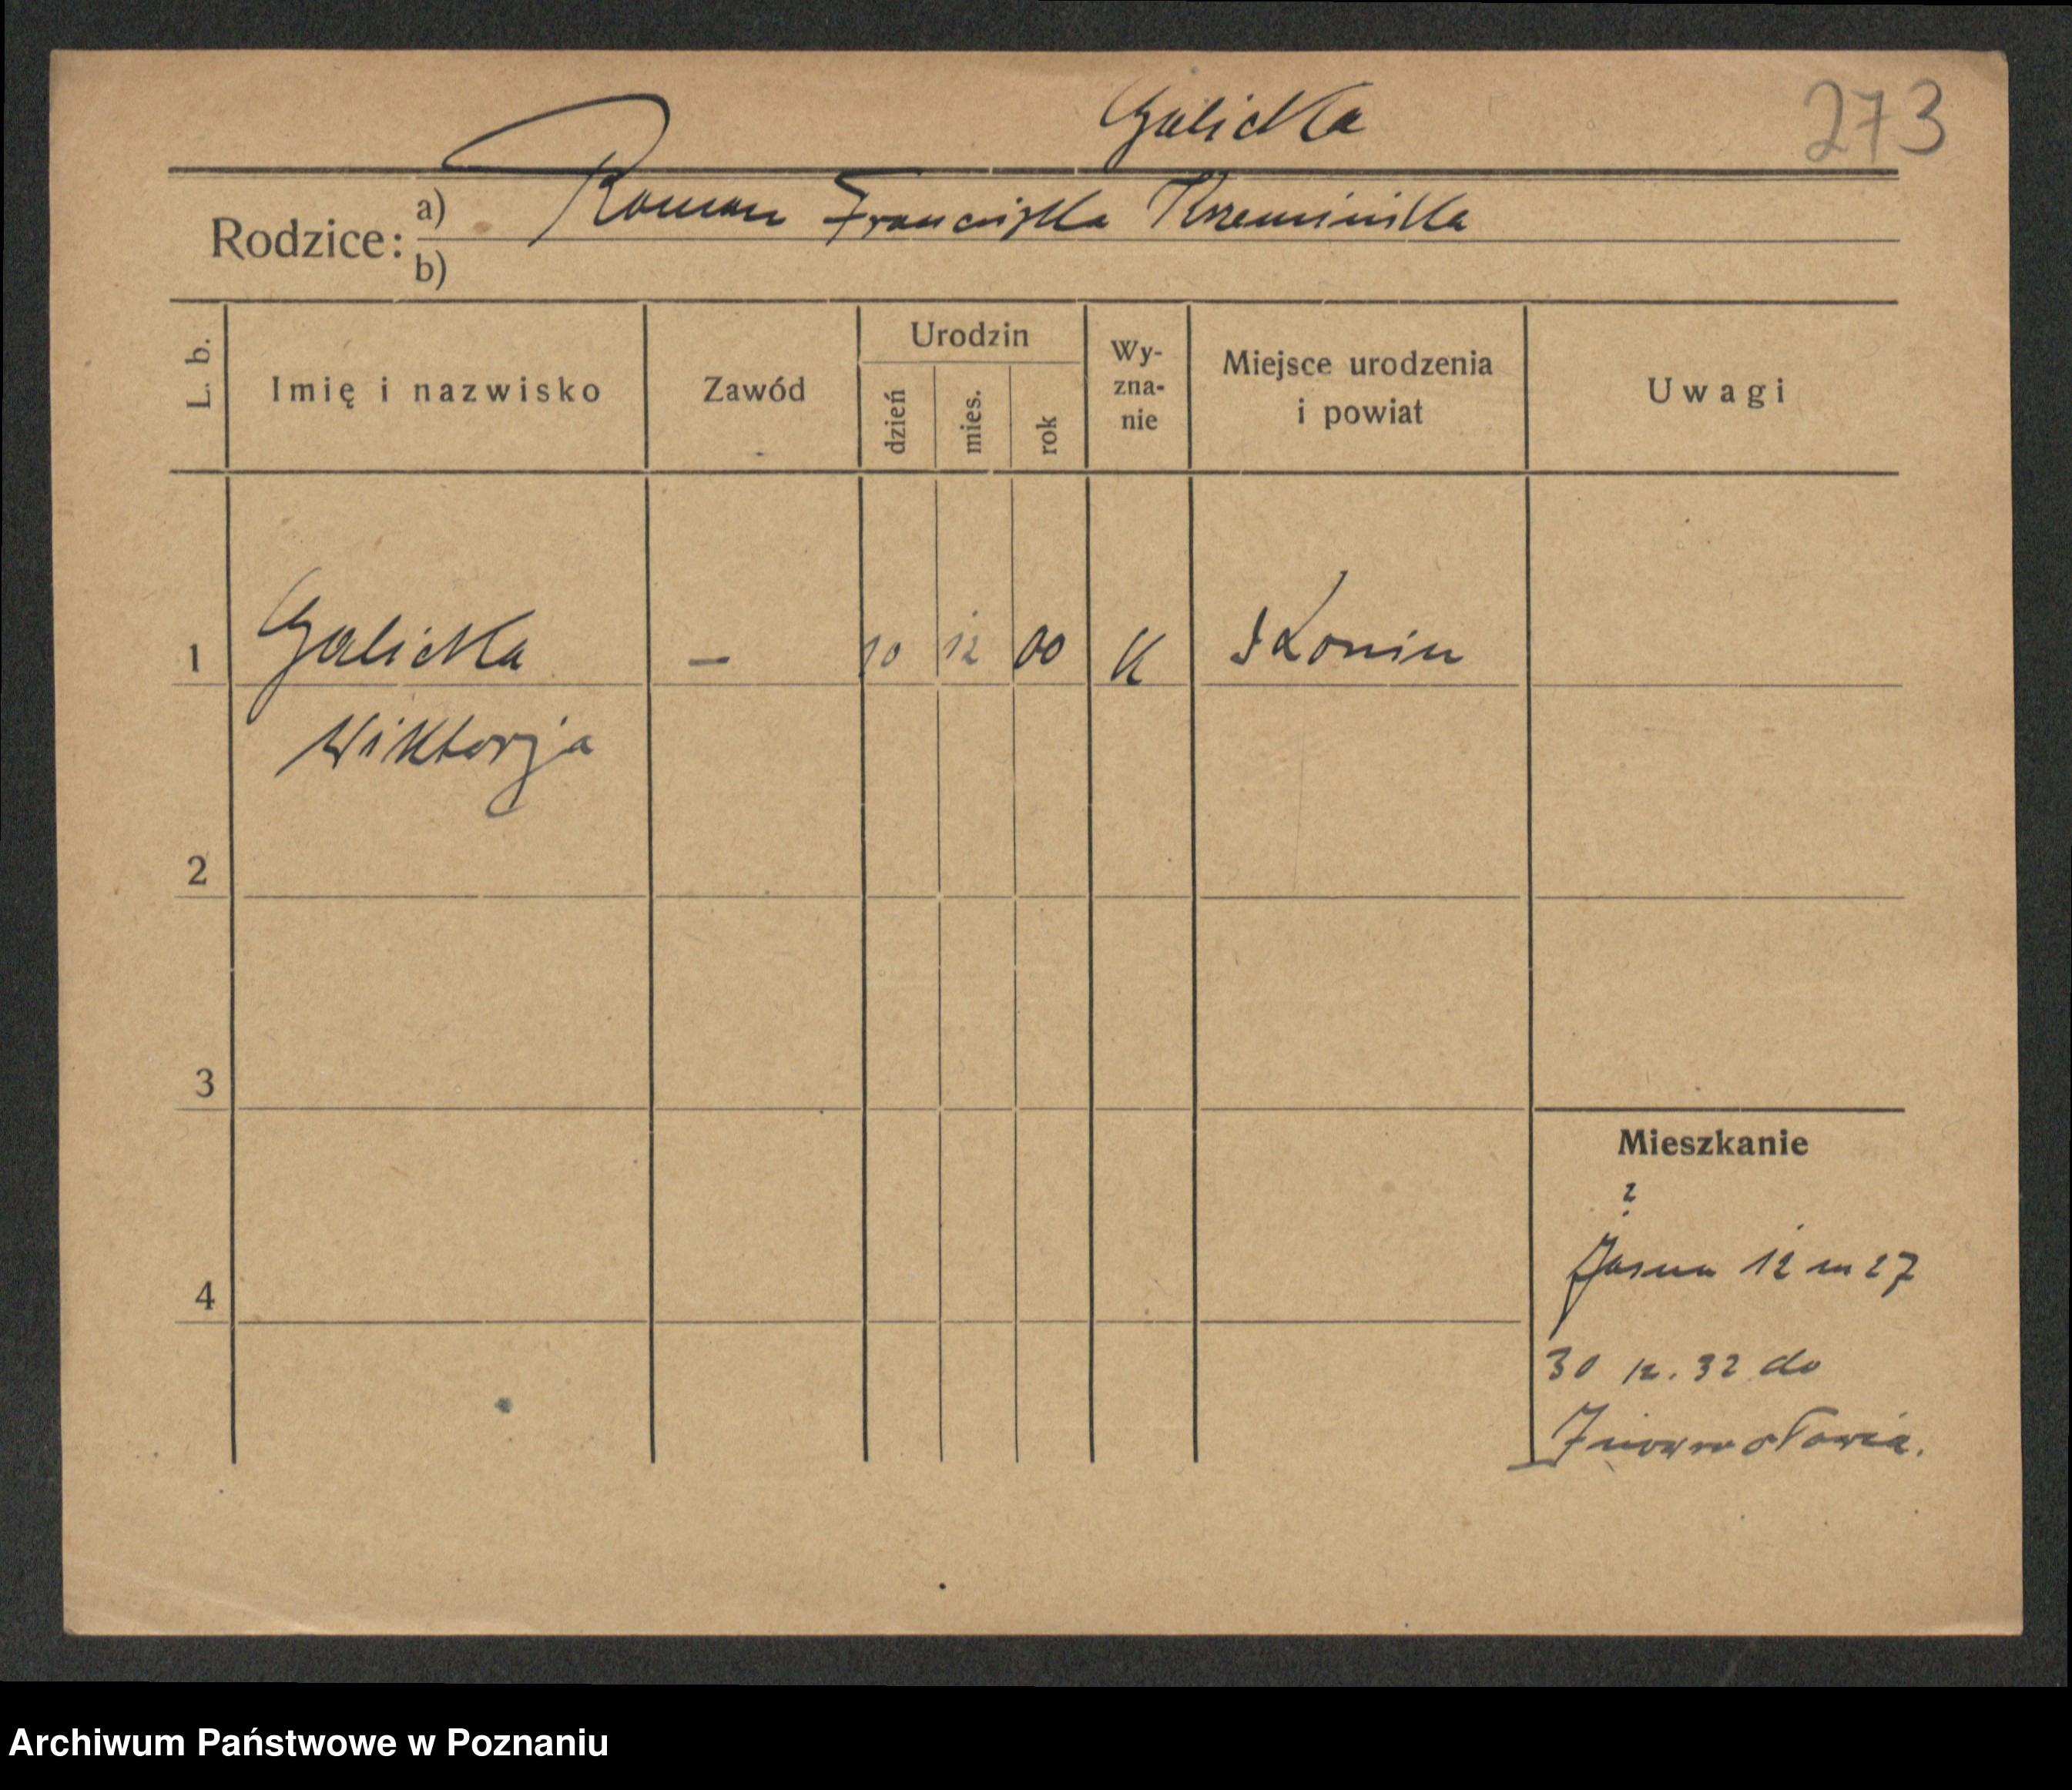 Galicka
273
Rodzice:
a) Roman Franciszka Krzemińska
b)
L. b.
Imię i nazwisko
Zawód
Urodzin
dzień
mies.
rok
Wy-
zna-
nie
Miejsce urodzenia
i powiat
Uwagi
1 Galicka – 10 12 00 K
Wiktorja
2
3
4
Mieszkanie
?
Jasna 12 m 27
30 12. 32 do
Inowrocławia.
Archiwum Państwowe w Poznaniu